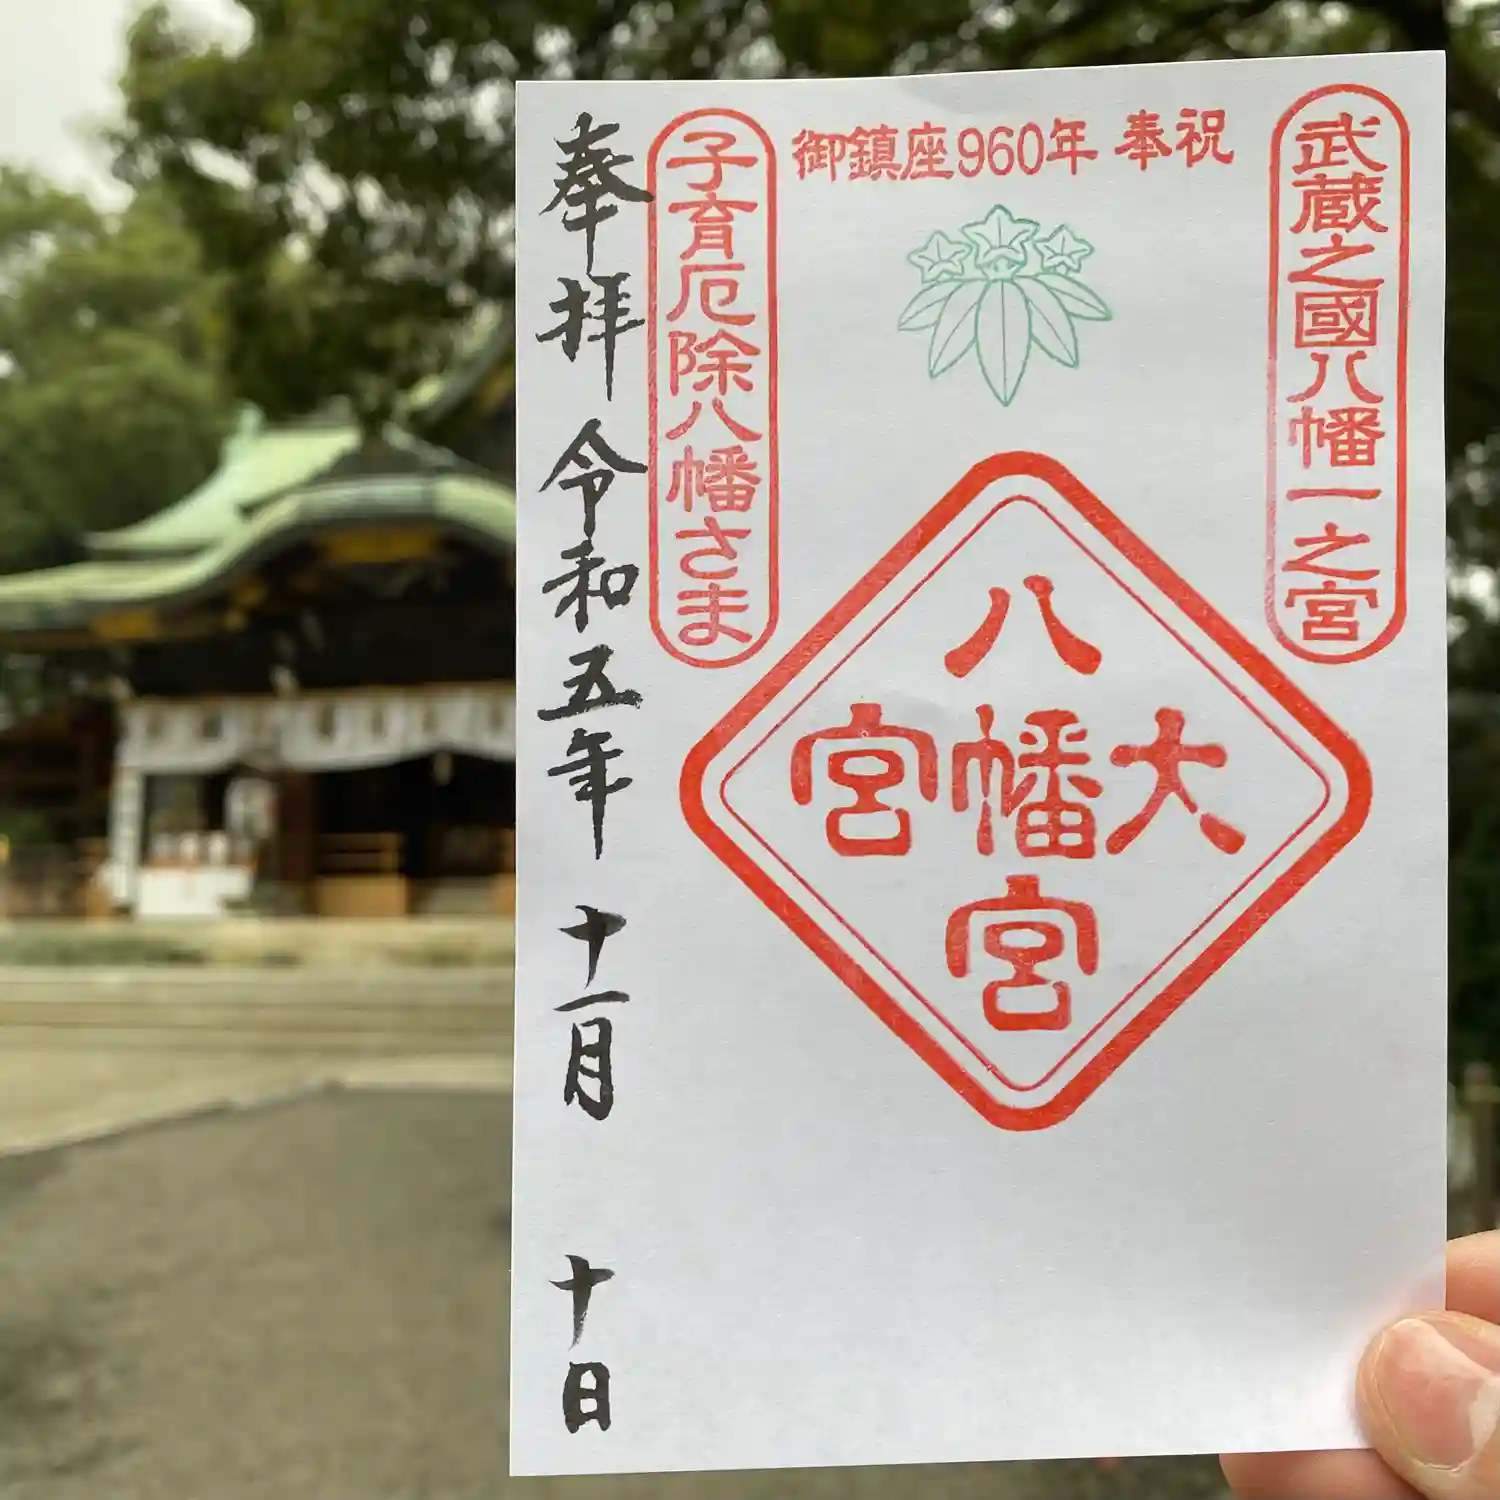 武蔵之國八幡一之宮
御鎮座960年 奉祝
八幡宮
大幡宮
子育厄除八幡さま
奉拝 令和五年 十一月 十日